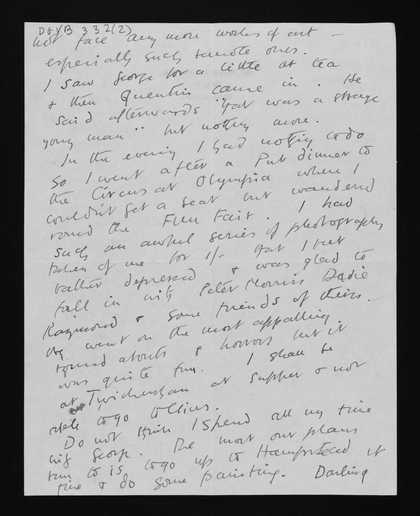 D & VB 332(2)
not face any more works of art –
especially such remote ones.
I saw George for a little at tea
& then Quentin came in. He
said afterwards "that was a strange
young man" but nothing more.
In the evening I had nothing to do
So I went after a Pub dinner to
the Circus at Olympia where I
couldn't get a seat but wandered
round the Fun Fair. I had
such an awful series of photographs
taken of me for 1/- that I felt
rather depressed & was glad to
fall in with Peter Morris Dadie
Raymond & some friends of theirs.
We went on the most appalling
round abouts & horrors but it
was quite fun. I shall be
at Twickenham at supper & not
able to go to Clive's.
Do not think I spend all my time
with George. The most our plans
run to is to go up to Hampstead if
fine & do some painting. Darling